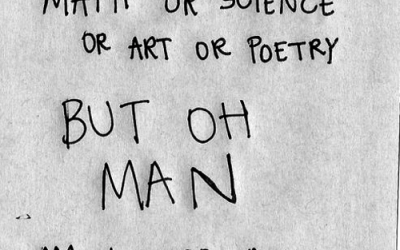 MATH OR SCIENCE
OR ART OR POETRY
BUT OH
MAN